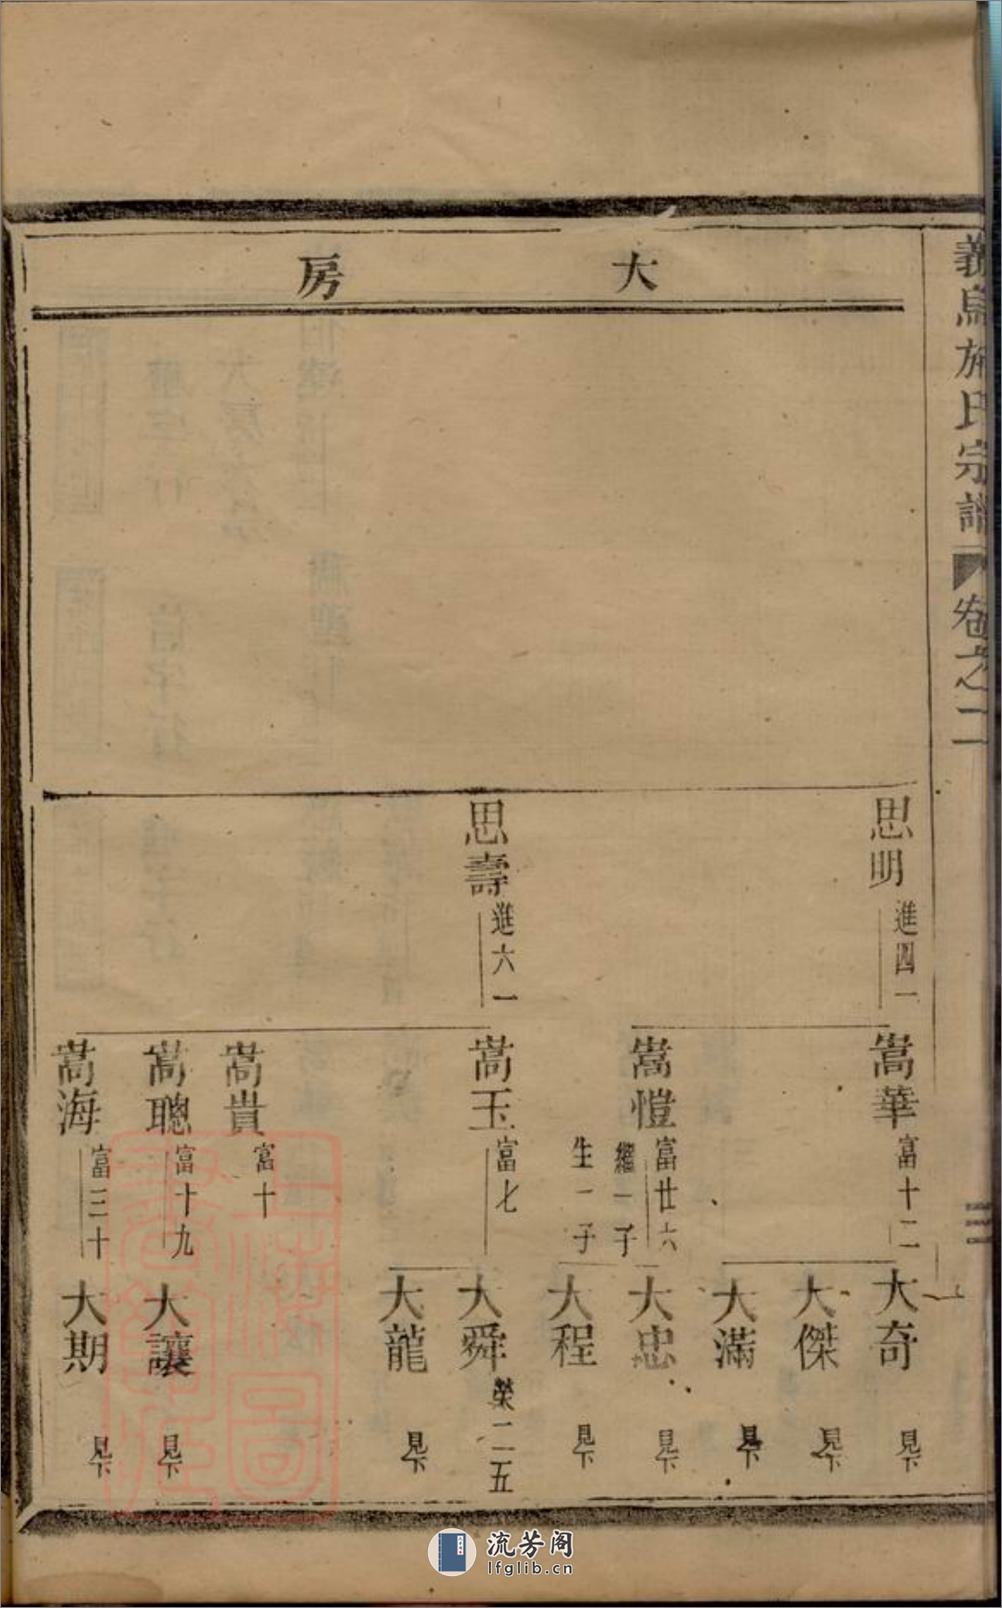 義烏施氏宗譜 卷之二
大房
思明 進四一
思壽 進六一
嵩華 富十二
嵩愷 富廿六 繼一子 生一子
嵩玉 富七
嵩貴 富十
嵩聰 富十九
嵩海 富三十
大奇 見下
大傑 見下
大滿 見下
大忠 見下
大程 見下
大舜 榮二五
大龍 見下
大讓 見下
大期 見下
上海圖書館藏
流芳阁
lfglib.cn